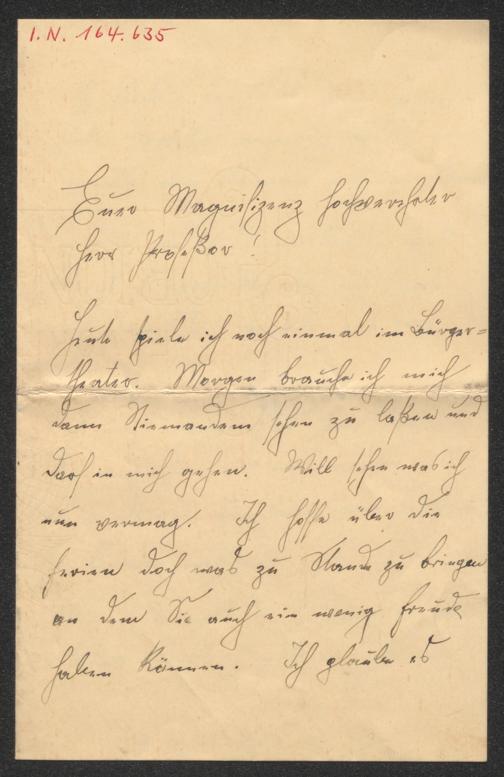 I.N. 164.635
Euer Magnifizenz hochverehrter
Herr Profeßor!
Heute spiele ich noch einmal im Bürger=
theater. Morgen brauche ich mich
dann Niemandem sehen zu laßen und
darf in mich gehen. Will sehen was ich
nun vermag. Ich hoffe über die
Ferien doch was zu Stande zu bringen
an dem Sie auch ein wenig Freude
haben können. Ich glaube es